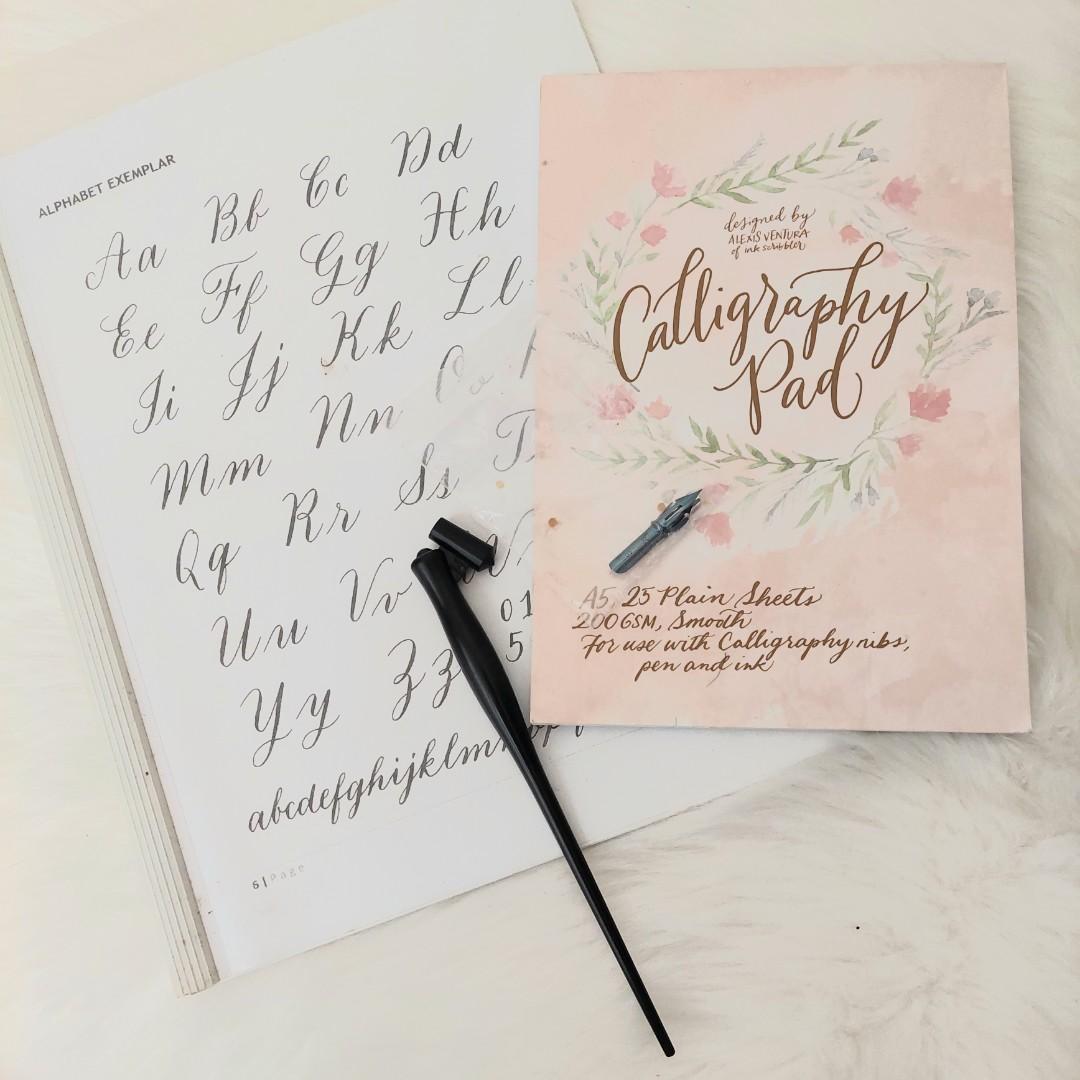 ALPHABET EXEMPLAR
Aa Bb Cc Dd
Ee Ff Gg Hh
Ii Jj Kk Ll
Mm Nn Oo
Qq Rr Ss T
Uu Vv W
Yy Zz 01
5
abcdefghijklmnop
6|Page
designed by
ALEXIS VENTURA
of ink scribbler
Calligraphy
Pad
A5, 25 Plain Sheets
200 GSM, Smooth
For use with Calligraphy nibs,
pen and ink